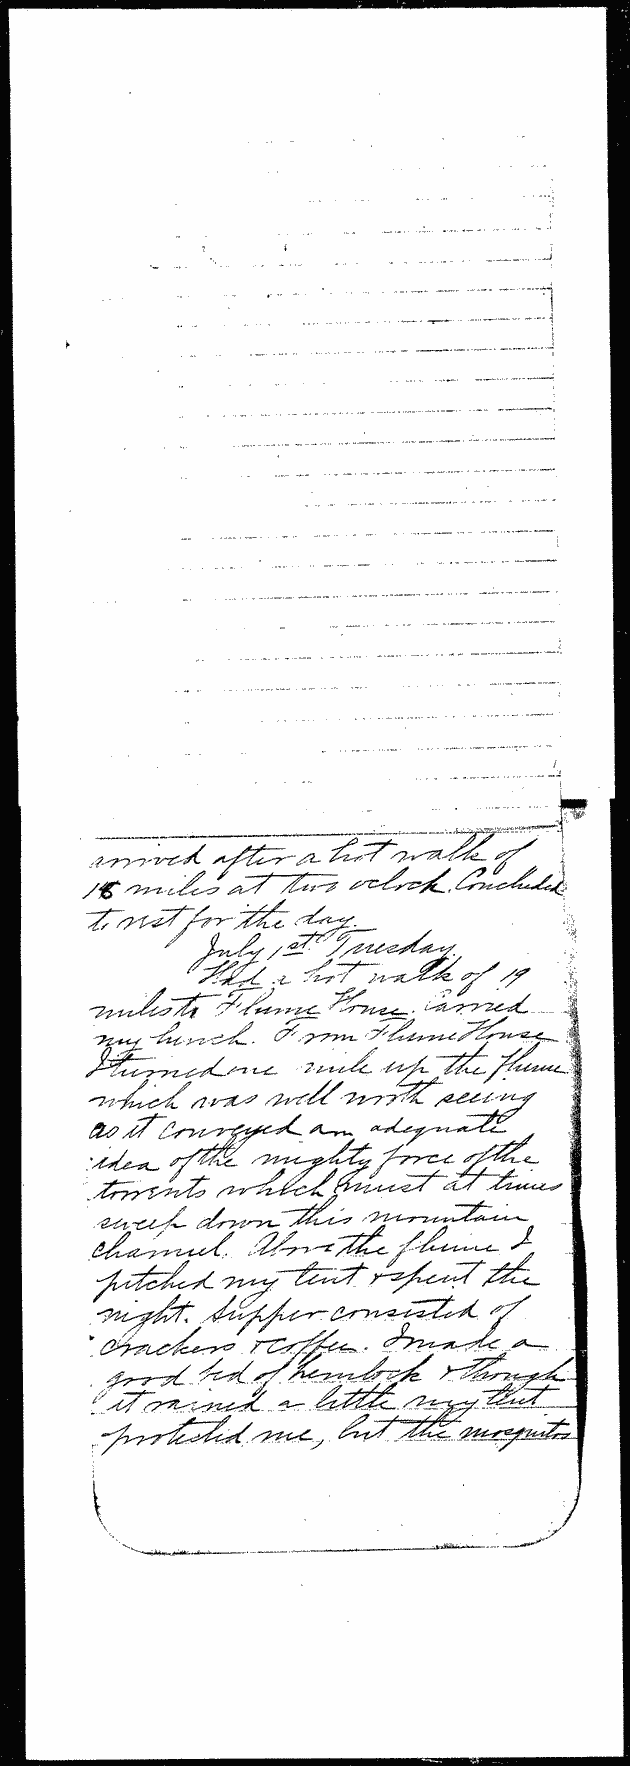 arrived after a hot walk of
18 miles at two oclock. Concluded
to rest for the day.
July 1st. Tuesday.
Had a hot walk of 19
miles to Flume House. Carried
my lunch. From Flume House
I turned one mile up the flume
which was well worth seeing
as it conveyed an adequate
idea of the mighty force of the
torrents which must at times
sweep down this mountain
channel. Above the flume I
pitched my tent & spent the
night. Supper consisted of
crackers & coffee. I made a
good bed of hemlock & though
it rained a little my tent
protected me, but the mosquitos